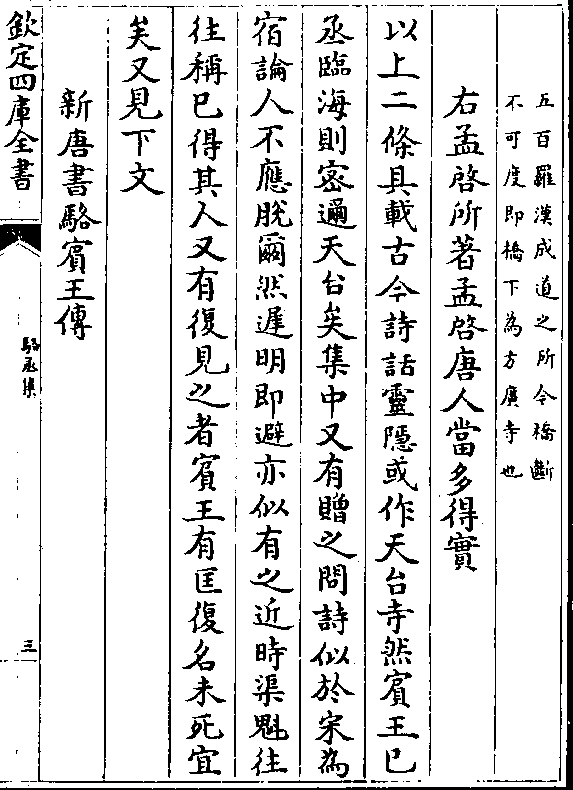 五百羅漢成道之所今橋斷
不可度即橋下為方廣寺也
右孟啓所著孟啓唐人當多得實
以上二條具載古今詩話靈隱或作天台寺然賓王已
丞臨海則宻邇天台矣集中又有贈之問詩似於宋為
宿論人不應脫爾然遲明即避亦似有之近時渠魁往
往稱已得其人又有復見之者賓王有匡復名未死宜
矣又見下文
新唐書駱賓王傳
欽定四庫全書
駱丞集
三